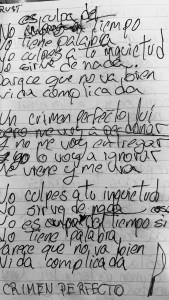 es culpa del
No tiempo
No tiene palabra
No culpes a tu inquietud
No sirve de nada
Parece que no va bien
Vida complicada
Un crimen perfecto fui
pero me voy a perdonar
Y no me voy a entregar
lo voy a ignorar
No viene y me da
No culpes a tu inquietud
No sirve de nada
No es del tiempo si
No tiene palabra
Parece que no va bien
Vida complicada
CRIMEN PERFECTO